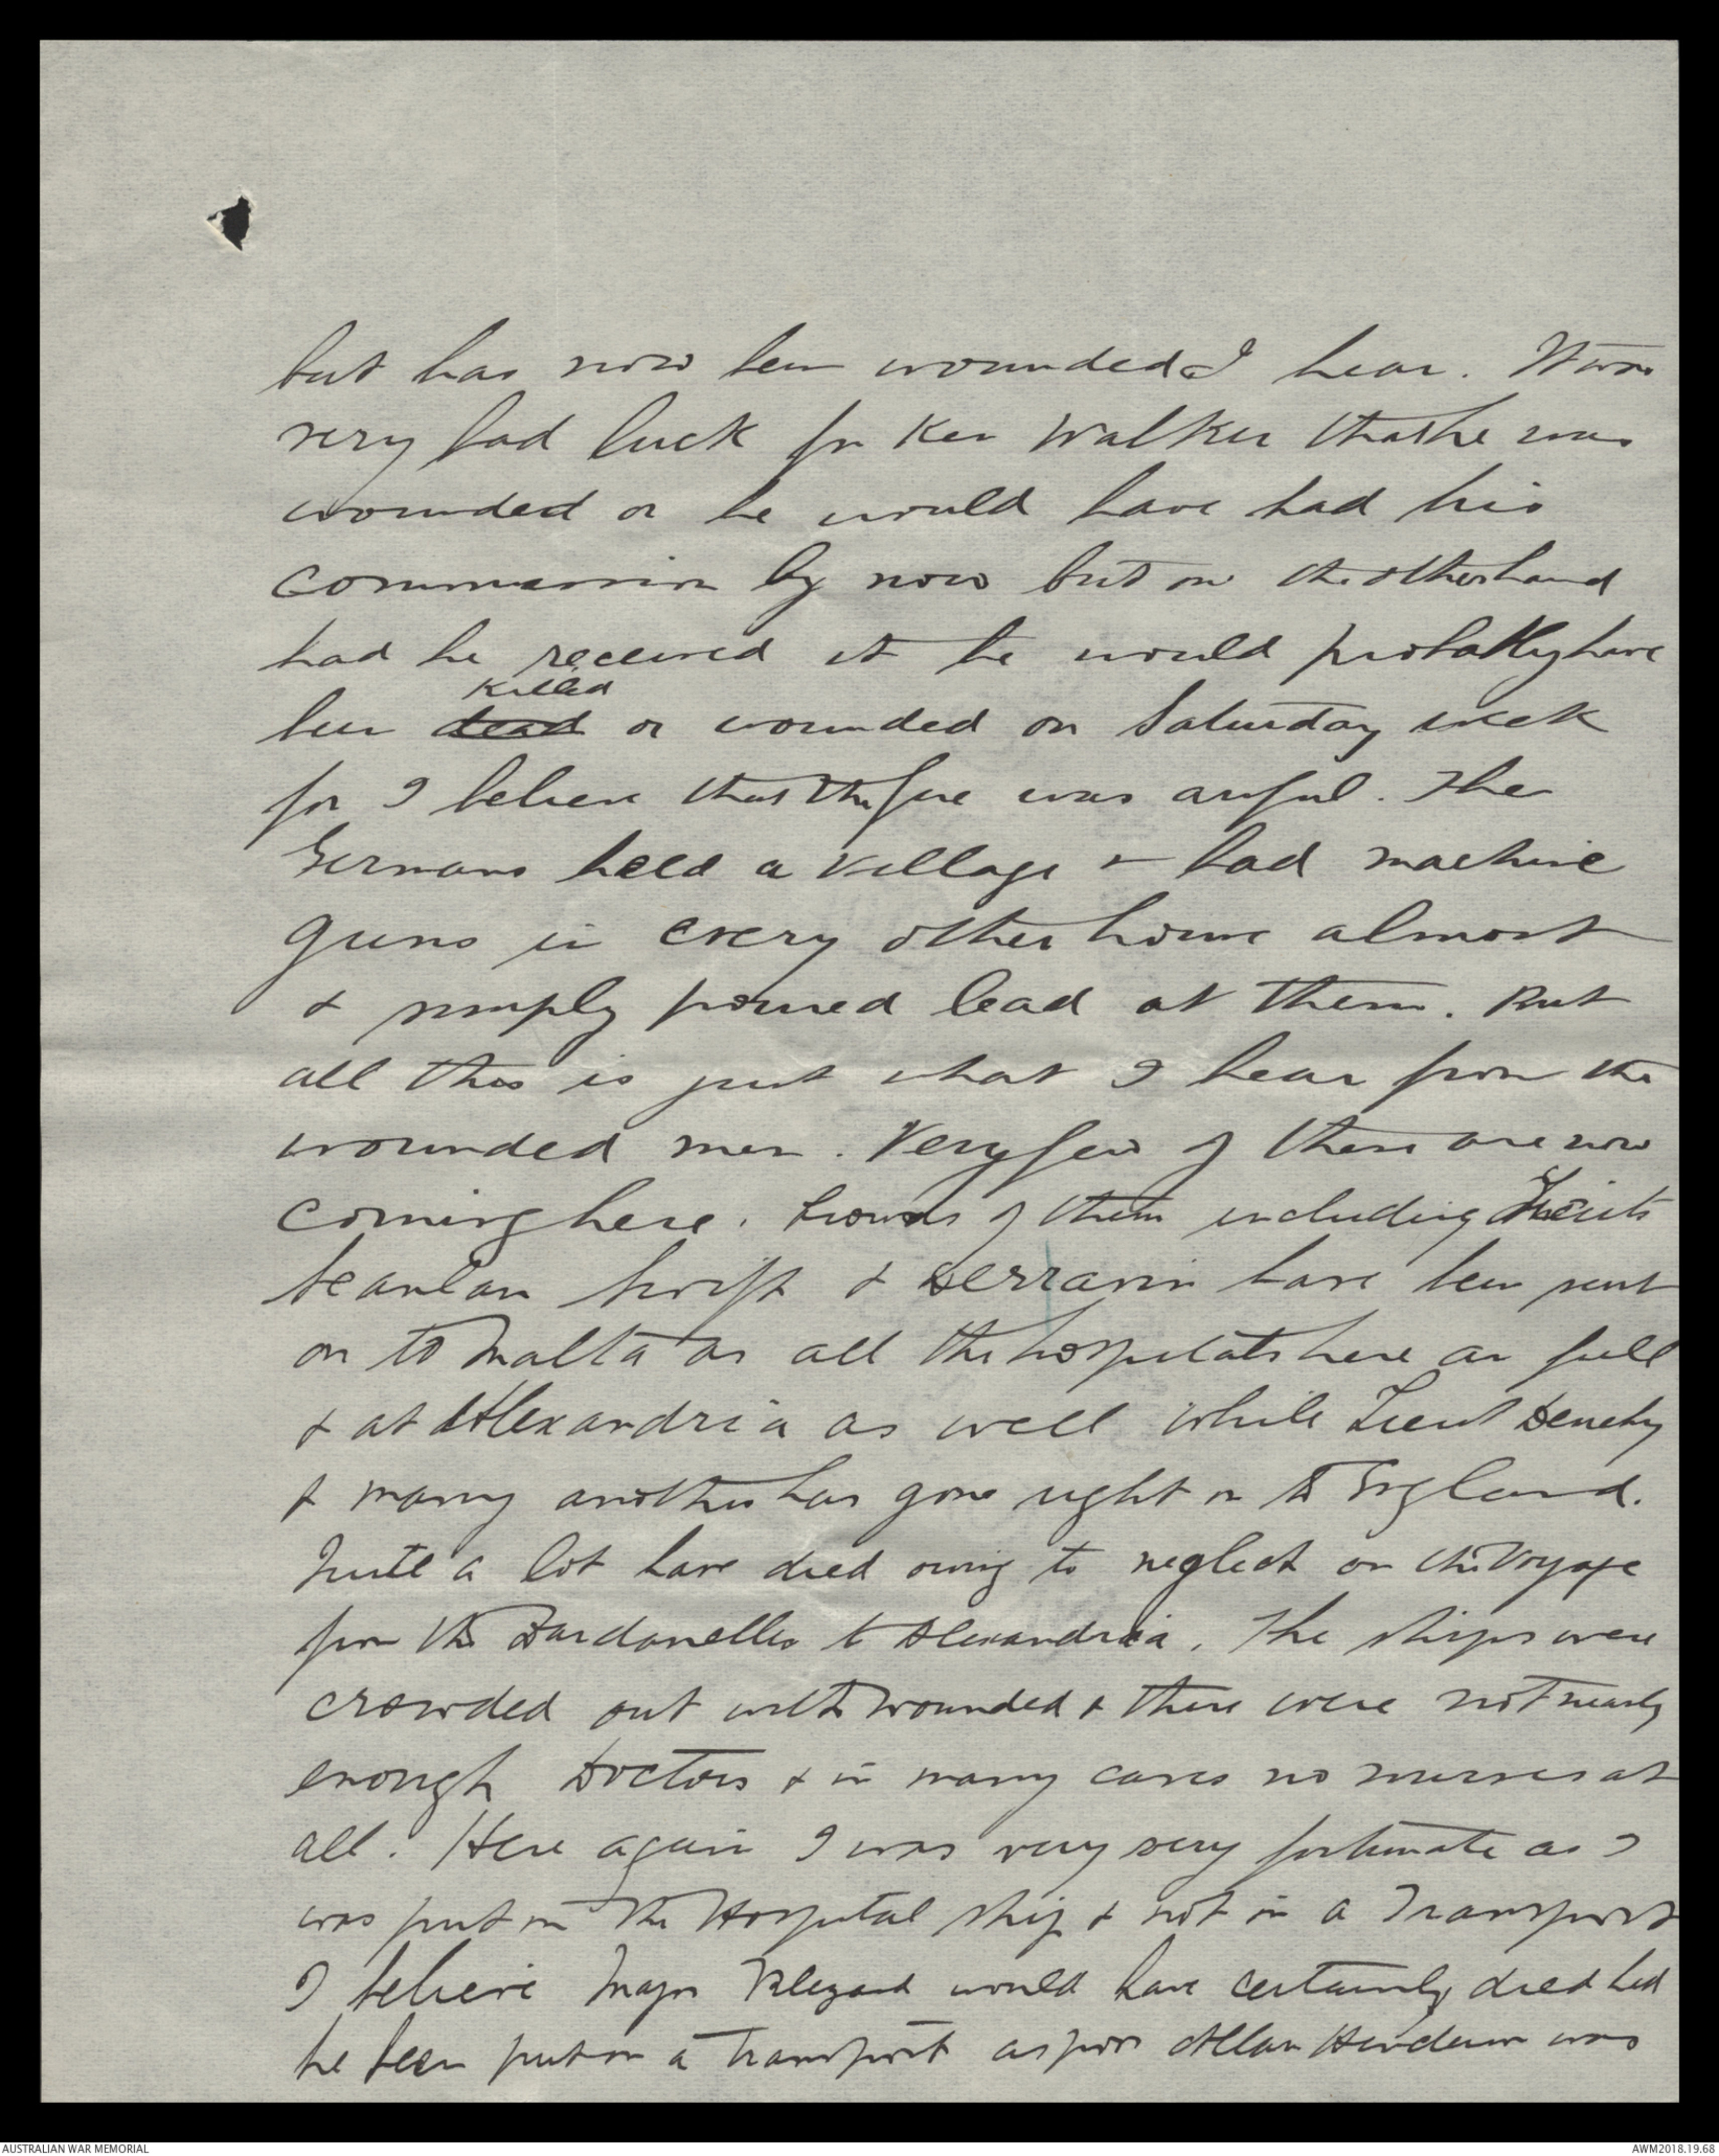 but has now been wounded I hear. It was
very bad luck for Ken Walker that he was
wounded or he would have had his
commission by now but on the other hand
had he received it he would probably have
killed
been dead or wounded on Saturday week
for I believe that the fire was awful. The
Germans held a village & had machine
guns in every other house almost
& simply poured lead at them. But
all this is just what I hear from the
wounded men. Very few of them are now
coming here. Crowds of them including Lieuts
Scanlan Swift & Derravin have been sent
on to Malta as all the hospitals here are full
& at Alexandria as well while Lieut Denehy
& many another has gone right on to England.
Quite a lot have died owing to neglect on the voyage
from the Dardanelles to Alexandria. The ships were
crowded out with wounded & there were not nearly
enough Doctors & in many cases no nurses at
all. Here again I was very very fortunate as I
was put on the Hospital ship & not on a Transport
I believe Major Blezard would have certainly died had
he been put on a Transport as poor Allan Henderson was
AUSTRALIAN WAR MEMORIAL
AWM2018.19.68